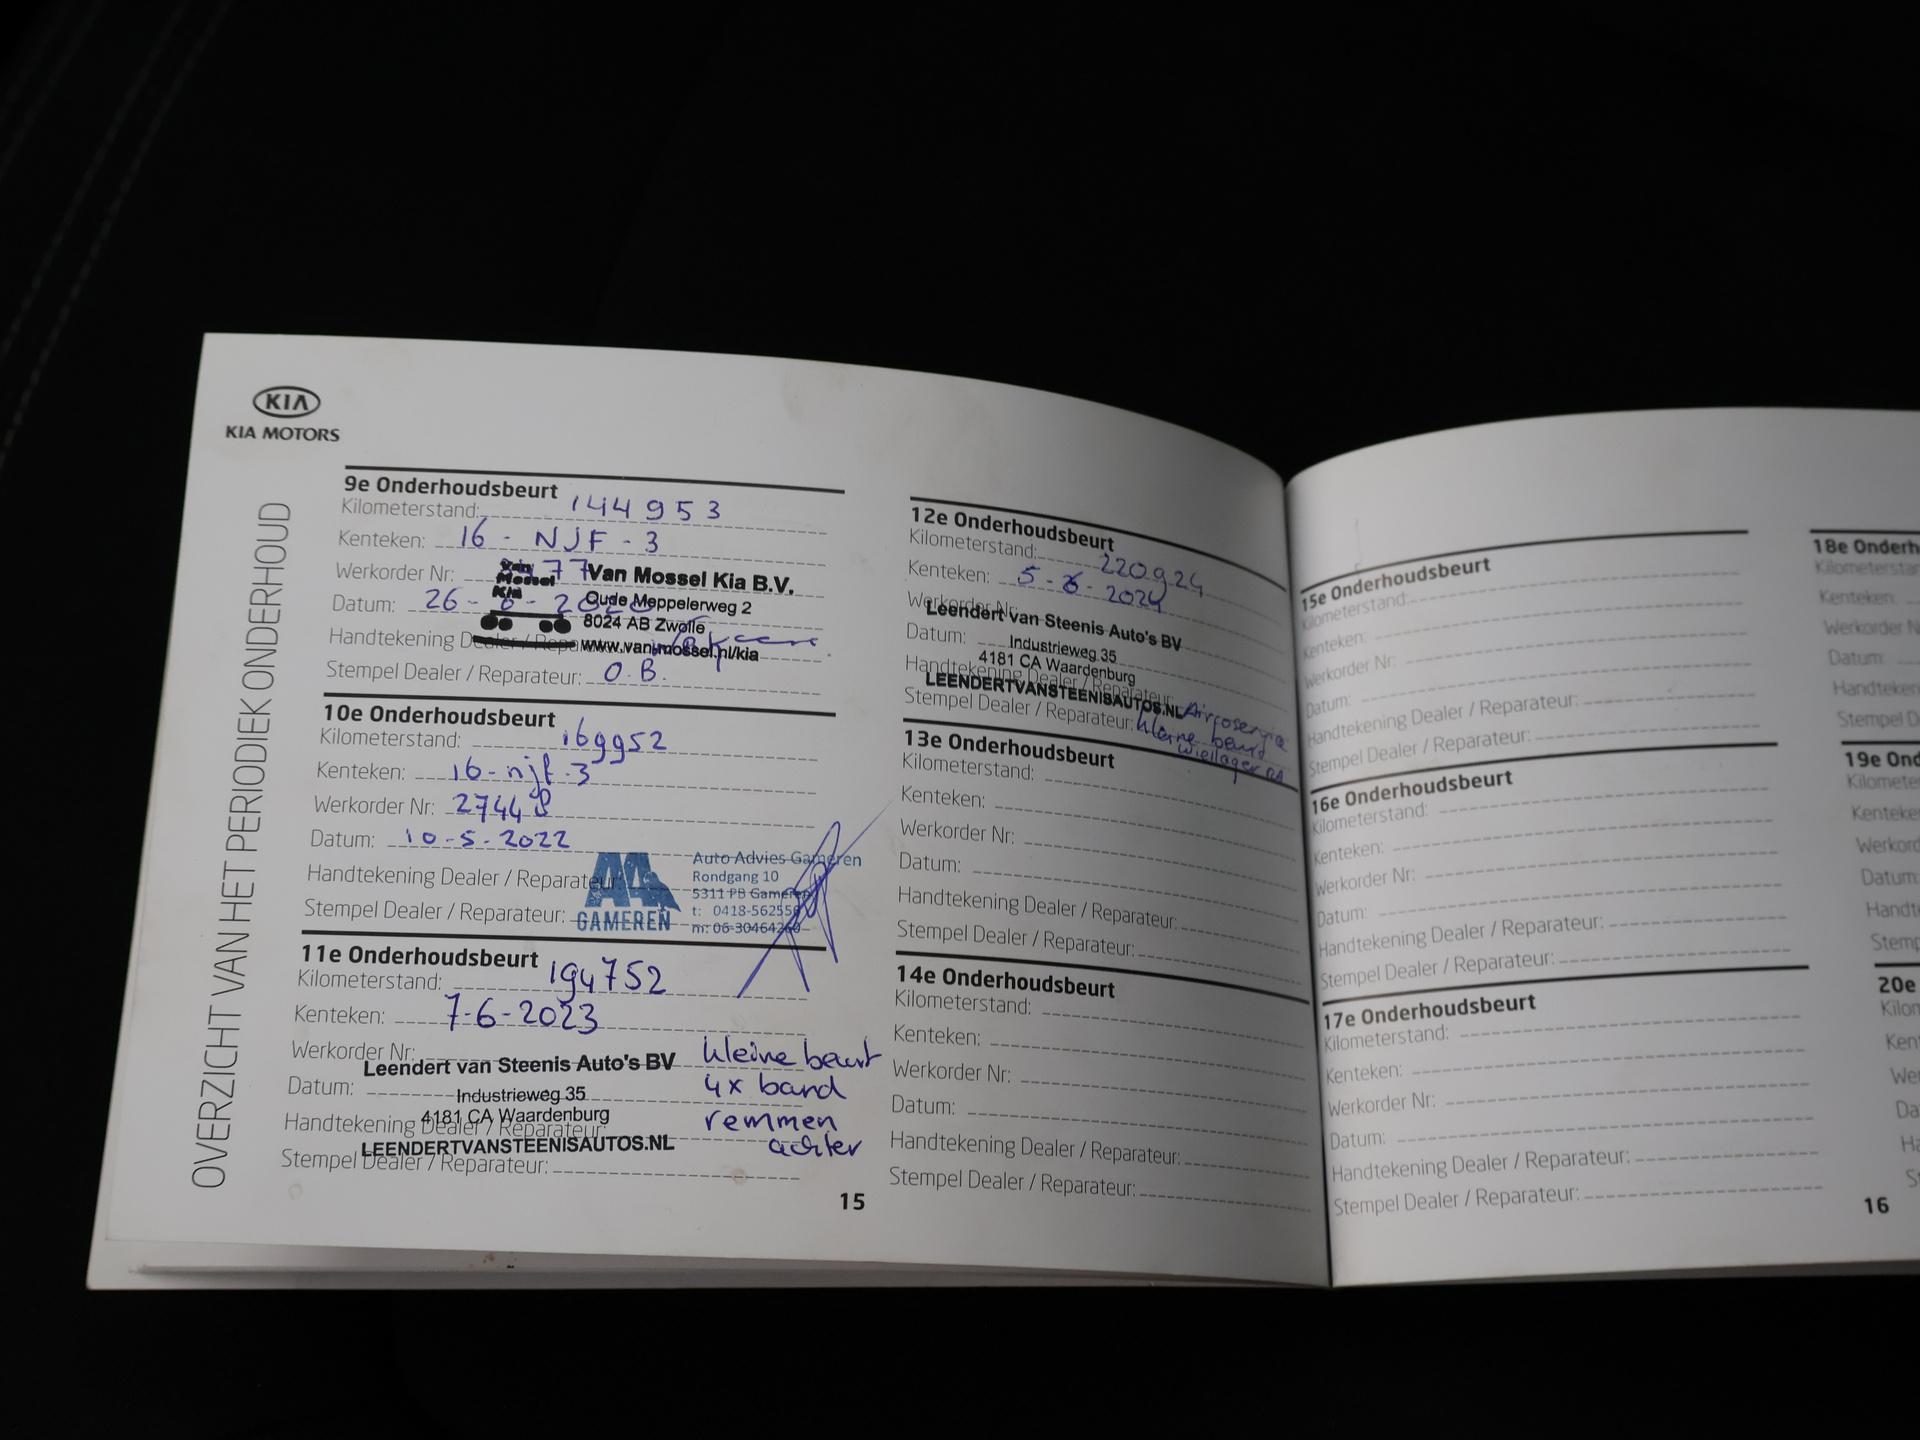 KIA
KIA MOTORS
OVERZICHT VAN HET PERIODIEK ONDERHOUD
9e Onderhoudsbeurt
Kilometerstand: 144953
Kenteken: 16 - NJF - 3
Werkorder Nr: 77
Datum: 26 - 8 - 2020
Handtekening Dealer / Reparateur:
Stempel Dealer / Reparateur: O.B.
Van Mossel Kia
Van Mossel Kia B.V.
Oude Meppelerweg 2
8024 AB Zwolle
www.vanmossel.nl/kia
10e Onderhoudsbeurt
Kilometerstand: 169952
Kenteken: 16-njf-3
Werkorder Nr: 27448
Datum: 10-5-2022
Handtekening Dealer / Reparateur:
Stempel Dealer / Reparateur:
AA
GAMEREN
Auto Advies Gameren
Rondgang 10
5311 PB Gameren
t: 0418-562556
m: 06-30464260
11e Onderhoudsbeurt
Kilometerstand: 194752
Kenteken: 7-6-2023
Werkorder Nr:
Datum:
Handtekening Dealer / Reparateur:
Stempel Dealer / Reparateur:
Leendert van Steenis Auto's BV
Industrieweg 35
4181 CA Waardenburg
LEENDERTVANSTEENISAUTOS.NL
kleine beurt
4x band
remmen
achter
12e Onderhoudsbeurt
Kilometerstand: 220924
Kenteken: 5-6-2024
Werkorder Nr:
Datum:
Handtekening Dealer / Reparateur:
Stempel Dealer / Reparateur:
Leendert van Steenis Auto's BV
Industrieweg 35
4181 CA Waardenburg
LEENDERTVANSTEENISAUTOS.NL
Aircoservice
kleine beurt
wiellager RA
13e Onderhoudsbeurt
Kilometerstand:
Kenteken:
Werkorder Nr:
Datum:
Handtekening Dealer / Reparateur:
Stempel Dealer / Reparateur:
14e Onderhoudsbeurt
Kilometerstand:
Kenteken:
Werkorder Nr:
Datum:
Handtekening Dealer / Reparateur:
Stempel Dealer / Reparateur:
15
15e Onderhoudsbeurt
Kilometerstand:
Kenteken:
Werkorder Nr:
Datum:
Handtekening Dealer / Reparateur:
Stempel Dealer / Reparateur:
16e Onderhoudsbeurt
Kilometerstand:
Kenteken:
Werkorder Nr:
Datum:
Handtekening Dealer / Reparateur:
Stempel Dealer / Reparateur:
17e Onderhoudsbeurt
Kilometerstand:
Kenteken:
Werkorder Nr:
Datum:
Handtekening Dealer / Reparateur:
Stempel Dealer / Reparateur:
18e Onderh
Kilometerstan
Kenteken:
Werkorder N
Datum:
Handteken
Stempel D
19e Ond
Kilomete
Kenteke
Werkord
Datum
Handt
Stemp
20e
Kilon
Ken
We
Da
Ha
S
16